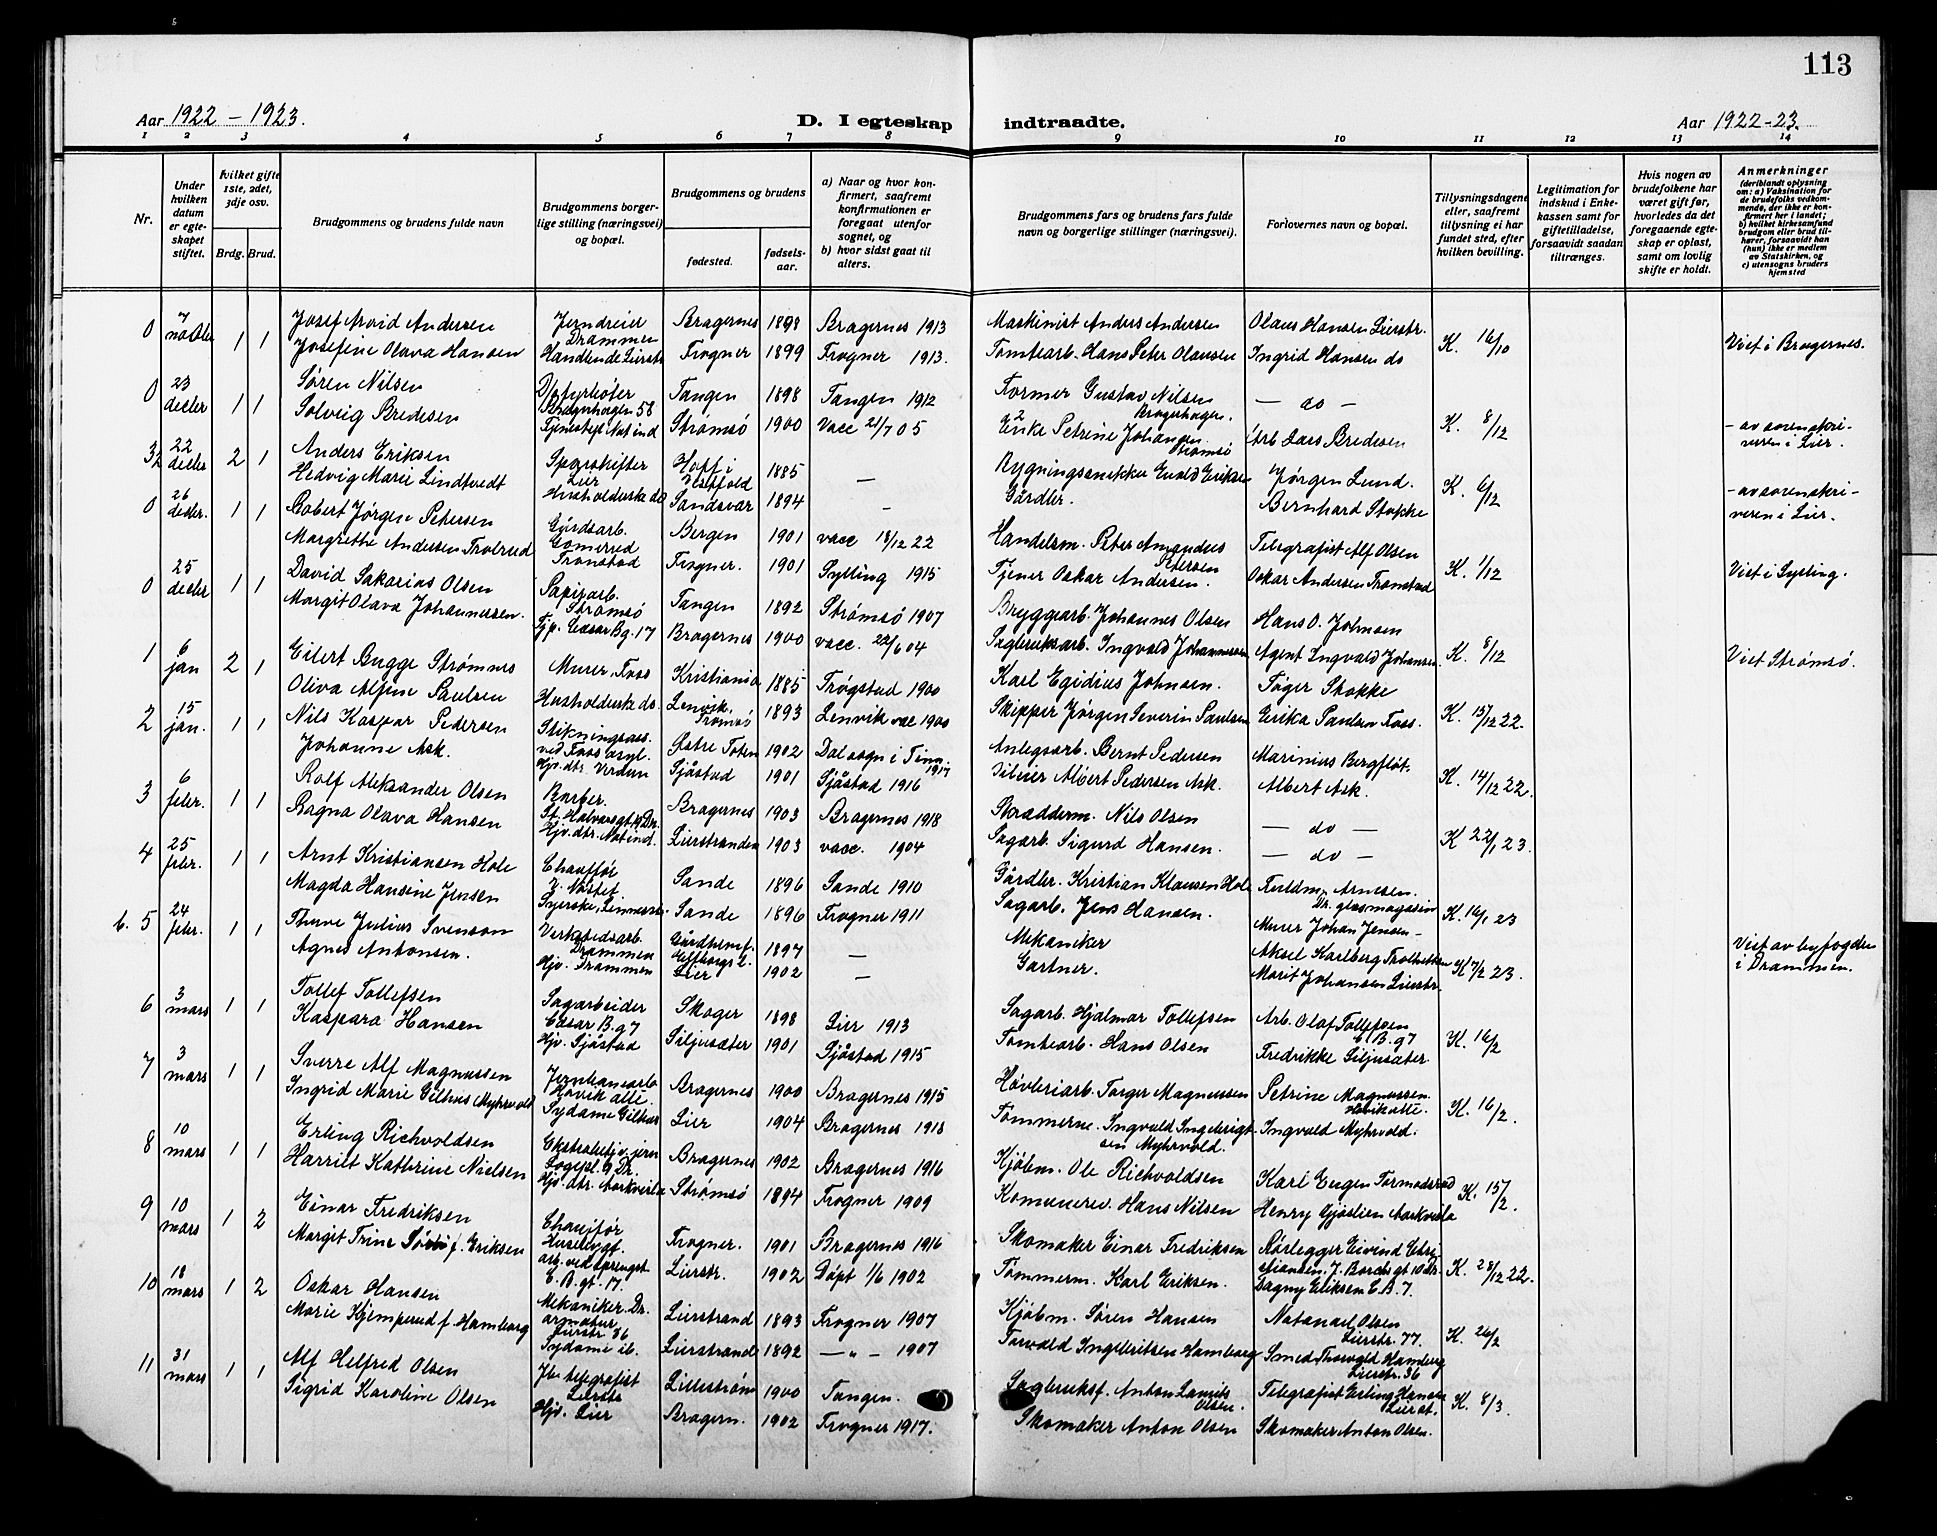 113
Aar 1922 – 1923.
D. I egteskap indtraadte.
Aar 1922-23.
1 2 3 4 5 6 7 8 9 10 11 12 13 14
Nr.
Under hvilken datum er egteskapet stiftet.
hvilket gifte 1ste, 2det, 3dje osv.
Brdg. Brud.
Brudgommens og brudens fulde navn
Brudgommens borgerlige stilling (næringsvei) og bopæl.
Brudgommens og brudens
fødested.
fødselsaar.
a) Naar og hvor konfirmert, saafremt konfirmationen er foregaat utenfor sognet, og
b) hvor sidst gaat til alters.
Brudgommens fars og brudens fars fulde navn og borgerlige stillinger (næringsvei).
Forlovernes navn og bopæl.
Tillysningsdagene eller, saafremt tillysning ei har fundet sted, efter hvilken bevilling.
Legitimation for indskud i Enkekassen samt for giftetilladelse, forsaavidt saadan tiltrænges.
Hvis nogen av brudefolkene har været gift før, hvorledes da det foregaaende egteskap er opløst, samt om lovlig skifte er holdt.
Anmerkninger
(deriblandt oplysning om: a) Vaksination for de brudefolks vedkommende, der ikke er konfirmert her i landet; b) hvilket kirkesamfund brudgom eller brud tilhører, forsaavidt han (hun) ikke er medlem av Statskirken, og c) utensogns bruders hjemsted
0 7 1 1 Josef Arvid Andersen Jerndreier Drammen Bragernes 1898 Bragernes 1913 Maskinist Anders Andersen Olaus Hansen Lierstr. K. 16/10 Viet i Bragernes.
Josefine Olava Hansen Frogner 1899 Frogner 1913. Tomtearb. Hans Peter Olausen Ingrid Hansen do
0 23 decbr 1 1 Søren Nilsen Tangen 1898 Tangen 1912 Former Gustav Nilsen – do – K. 8/12 – av sorenskriveren i Lier.
Solveig Bredesen Strømsø 1900 Vacc 21/7 05 Enke Petrine Johansen Strømsø Arb Lars Bredesen
22 decbr 2 1 Anders Eriksen Lier Hoff i Vestfold 1885 – Jørgen Lund. K. 6/12 – av sorenskriveren i Lier.
Hedvig Marie Lindtvedt Husholderske do Sandsvær 1894 – Gårdbr. Bernhard Stokke
0 26 decbr. 1 1 Robert Jørgen Petersen Gårdsarb. Bergen 1901 vacc 18/12 22 Handelsm. Peter Amandus Petersen Telegrafist Alf Olsen K. 1/12 Viet i Sylling.
Margrethe Andersen Tronstad Frogner. 1901 Sylling 1915 Tjener Oskar Andersen. Oskar Andersen Tronstad
0 25 decbr 1 1 David Sakarias Olsen Papirarb. Strømsø Tangen 1892 Strømsø 1907 Bryggearb. Johannes Olsen Hans O. Johnsen K. 8/12 Viet Strømsø.
Margit Olava Johannessen. Bragernes 1900 vacc. 22/6 04 Sagbruksarb. Ingvald Johannessen Agent Ingvald Johansen
1 6 jan 2 1 Eilert Bugge Strømnes Murer, Foss Kristiania 1885 Trøgstad 1900 Karl Egidius Johnsen. Tøger Stokke K. 15/12 22.
Oliva Alfine Paulsen Husholderske do. Lenvik, Tromsø 1893 Lenvik vac 1900 Skipper Jørgen Severin Paulsen Erika Paulsen Foss.
2 15 jan. 1 1 Nils Kaspar Pedersen ved Foss asyl. Østre Toten 1902 Dal sogn i Tinn 1917 Anlegsarb. Bernt Pedersen Marinius Bergflot. K. 14/12 22.
Johanne Ask. Hjv. dtr. Verdun Sjåstad 1901 Sjåstad 1916 Albert Pedersen Ask. Albert Ask.
3 6 febr. 1 1 Rolf Aleksander Olsen Barber. Bragernes 1903 Bragernes 1918 Skrædderm. Nils Olsen – do – K 22/1 23.
Ragna Olava Hansen Lierstranden 1903 vacc. 1904 Sagarb. Sigurd Hansen. – do –
4 25 febr. 1 1 Arnt Kristiansen Hole Chauffør Sande 1896 Sande 1910 Gårdbr. Kristian Klausen Hole Fuldm. Arnesen. Dr. glasmagasin K. 16/1 23
Magda Hansine Jensen Syerske, Sande 1896 Frogner 1911 Sagarb. Jens Hansen. Murer Johan Jensen –
b. 5 24 febr. 1 1 Thure Julius Svenson Verkstedsarb. Drammen 1897 – Mekaniker Aksel Karlberg K 7/2 23. Viet av byfogden i Drammen.
Agnes Antonsen. Hjv. Drammen Lier 1902 – Gartner. Marit Johansen Lierstr.
6 3 mars 1 1 Tollef Tollefsen Sagarbeider Skoger 1898 Lier 1913 Sagarb. Hjalmar Tollefsen Arb. Olaf Tollefsen C. B. g 7 K. 16/2
Kaspara Hansen Hjv. Sjåstad Siljusæter 1901 Sjåstad 1915 Tomtearb. Hans Olsen Fredrikke Siljusæter.
7 3 mars 1 1 Sverre Alf Magnussen Bragernes 1900 Bragernes 1915 Høvleriarb. Torger Magnussen Petrine Magnussen. K. 16/2.
Ingrid Marie Gilhus Myhrvold Sydame Gilhus Lier 1904 Bragernes 1918 Tømmerm. Ingvald Ingebrigtsen Myhrvold. Ingvald Myhrvold.
8 10 mars 1 1 Erling Richvoldsen Bragernes 1902 Bragernes 1916 Kjøbm. Ole Richvoldsen Karl Eugen Tormodsrud K. 15/2.
Harriet Kathrine Nielsen Strømsø 1894 Frogner 1909 Hans Nilsen
9 10 mars 1 2 Einar Fredriksen Chauffør Frogner. 1901 Bragernes 1916 Skomaker Einar Fredriksen Rørlegger Eivind Christiansen, J. Borchsgt 10 Dr. K. 28/12 22.
Margit Trine f. Eriksen C. B. gt. 17. Lierstr. 1902 Døpt 1/6 1902 Tømmerm. Karl Eriksen. Dagny Eriksen C. B. 7.
10 18 mars 1 2 Oskar Hansen Mekaniker Dr. armatur Lierstr 36 Lierstrand 1893 Frogner 1907 Kjøbm. Søren Hansen Natanael Olsen Lierstr. 77. K. 26/2
Marie Kjemperud f. Hamborg Sydame ib. Lierstrand 1892 – " – 1907 Torvald Ingebritsen Hamborg Smed Thorvald Hamborg Lierstr. 36
11 31 mars 1 1 Alf Helfred Olsen Jb. telegrafist Lillestrøm 1900 Tangen. Sagbruksf. Anton Olsen. Telegrafist Erling Hansen Lierst. K. 8/3.
Sigrid Karoline Olsen Hjv. Lier Bragern. 1902 Frogner 1917. Skomaker Anton Olsen Skomaker Anton Olsen.